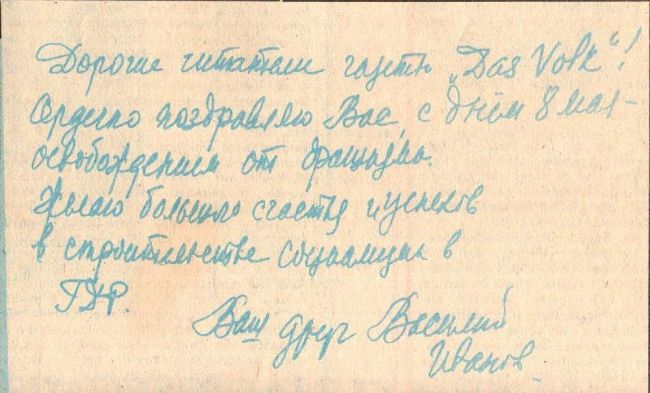 Дорогие читатели газеты „Das Volk“!
Сердечно поздравляю Вас, с днём 8 мая –
освобождением от фашизма.
Желаю больших счастья и успехов
в строительстве социализма в
ГДР.
Ваш друг Василий
Иванов.